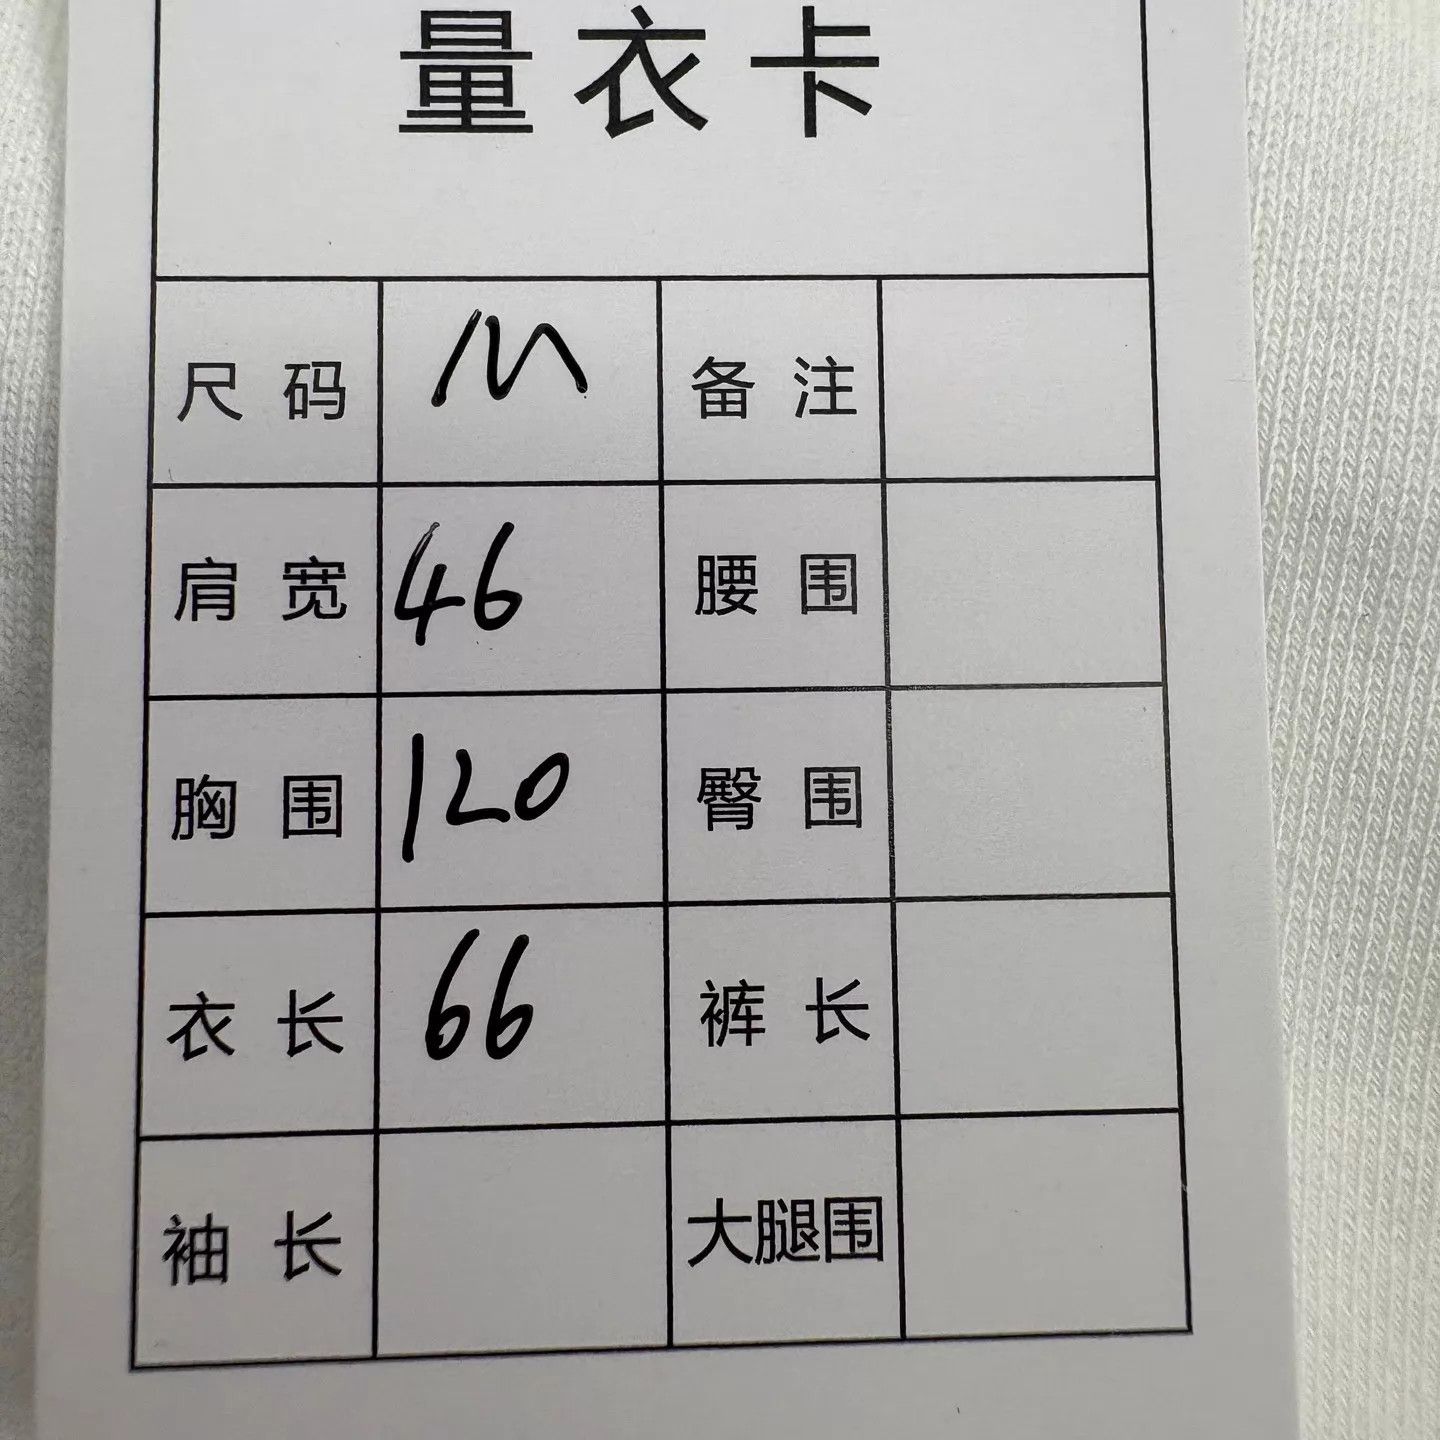 量衣卡
尺码 M 备注
肩宽 46 腰围
胸围 120 臀围
衣长 66 裤长
袖长 大腿围